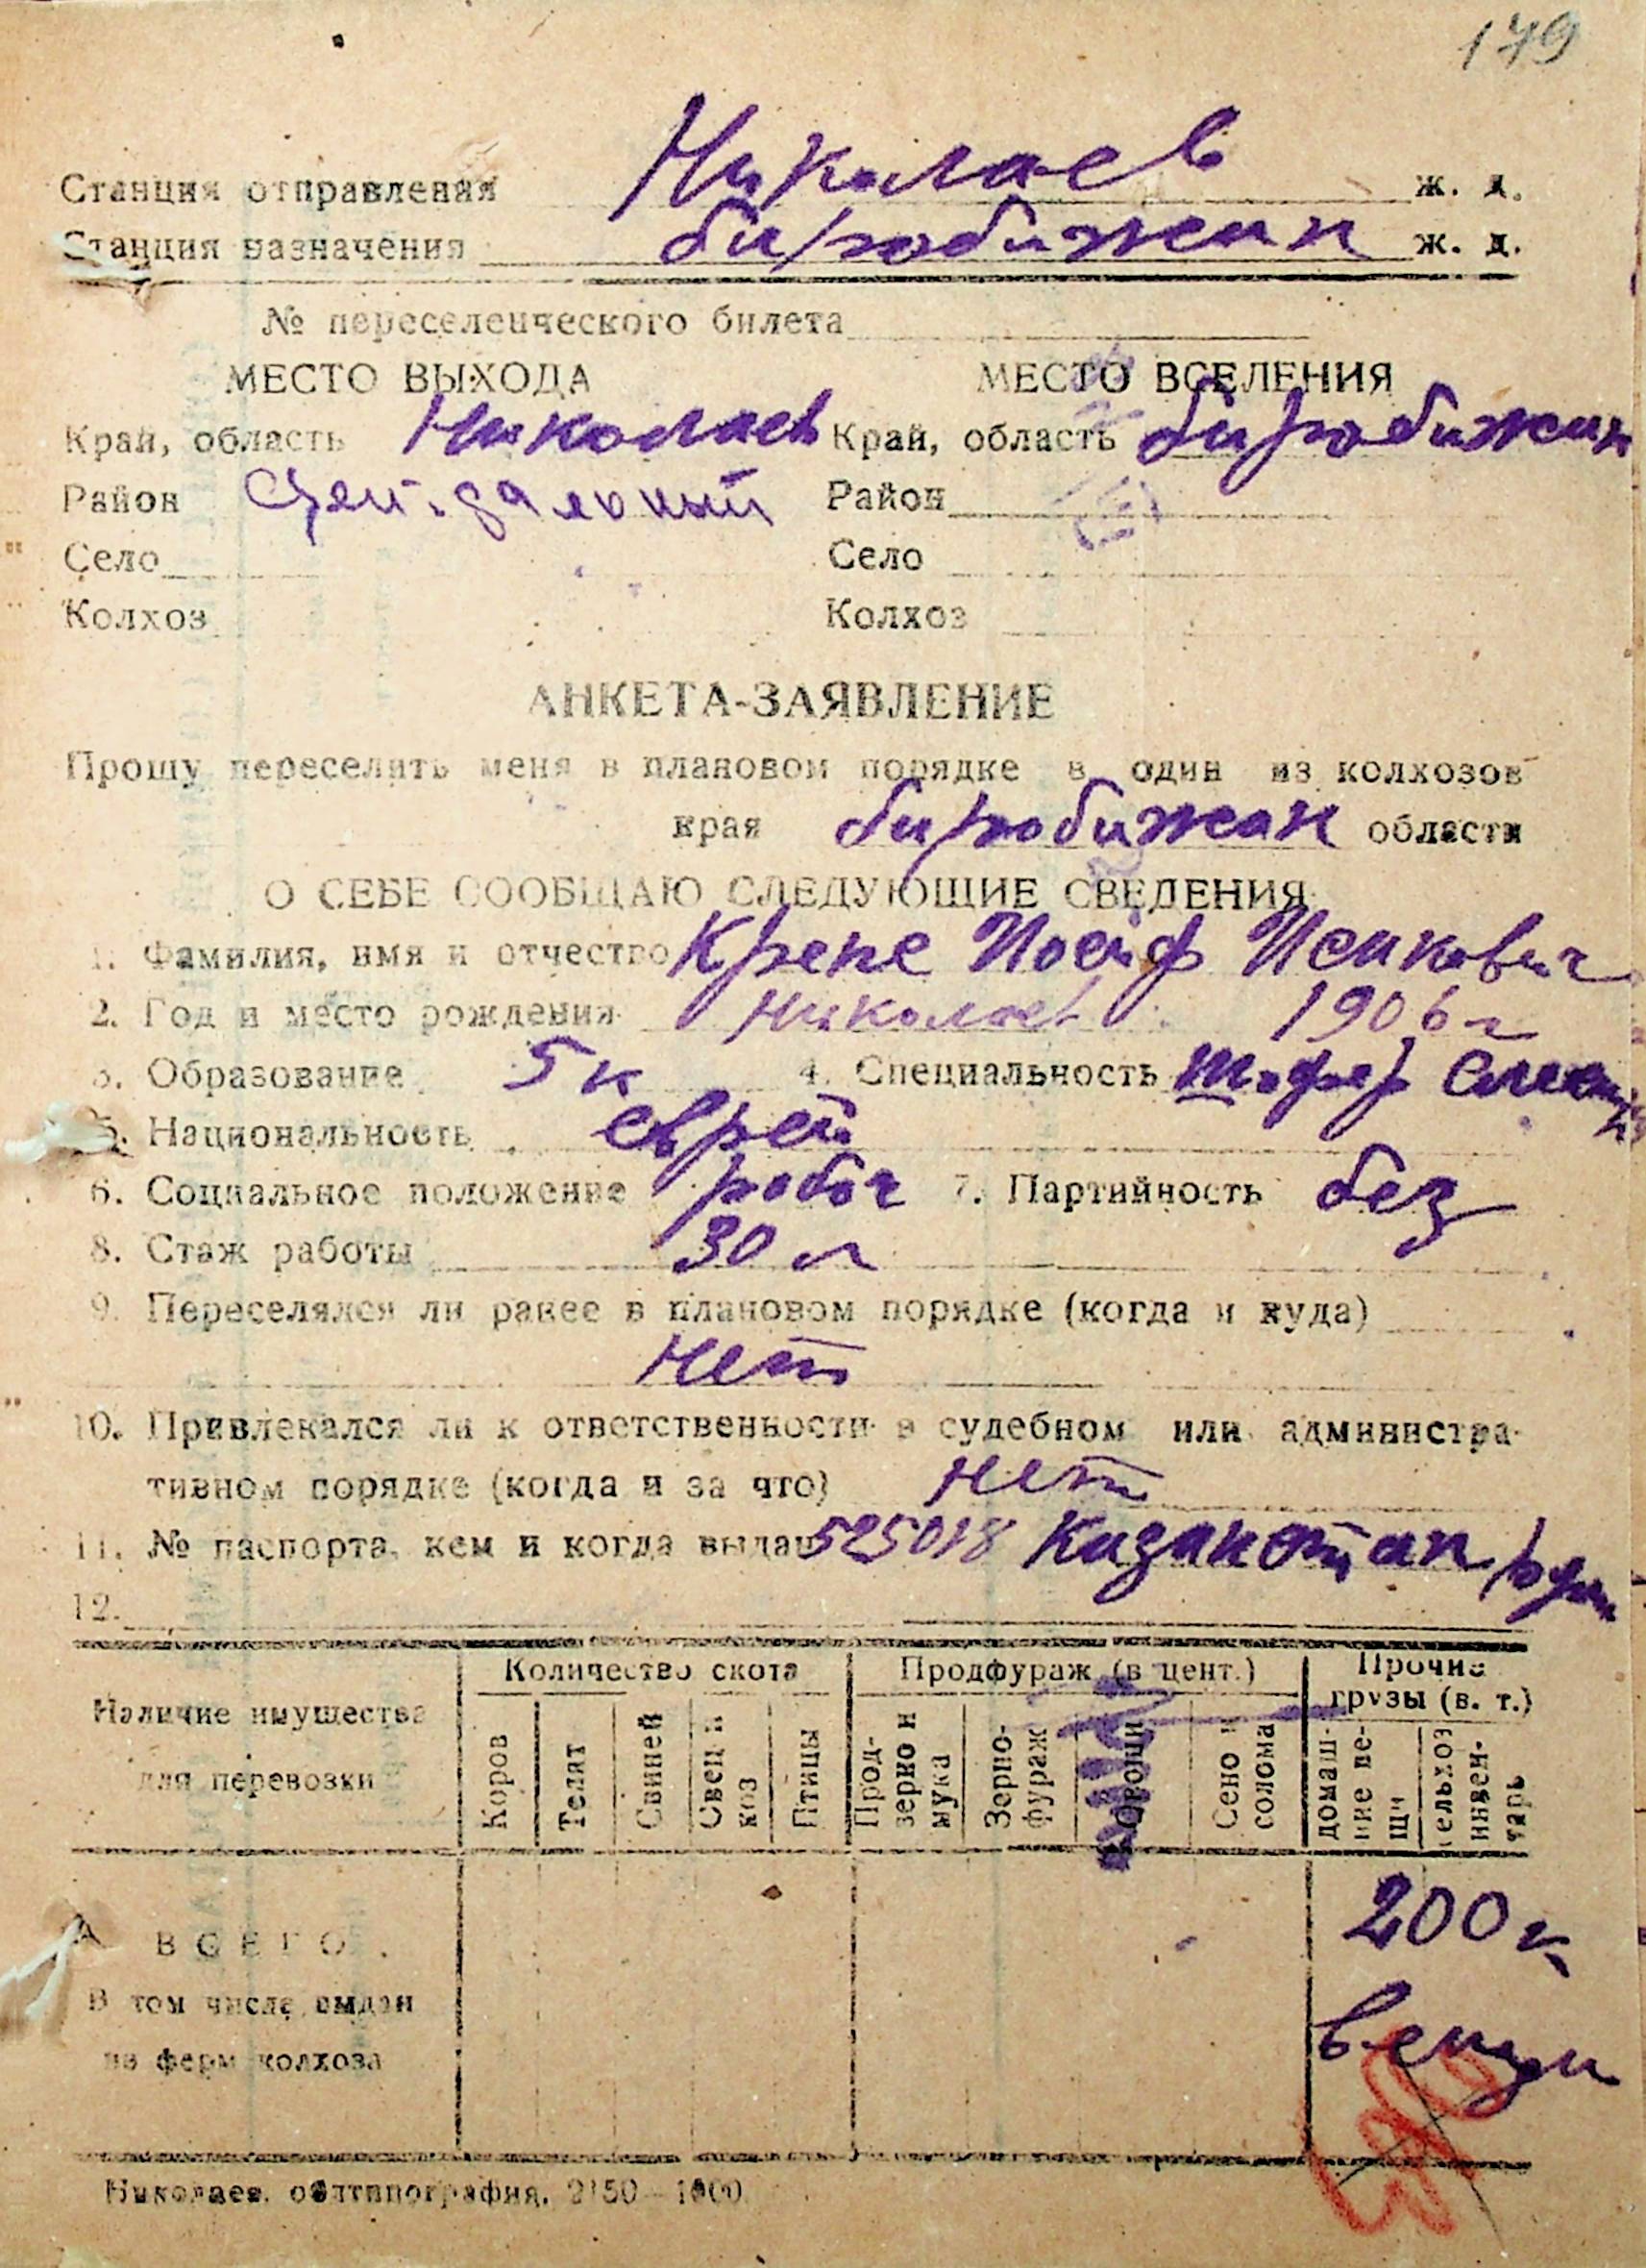 179
Станция отправления Николаев ж. д.
Станция назначения биробижан ж. д.
№ переселенческого билета
МЕСТО ВЫХОДА МЕСТО ВСЕЛЕНИЯ
Край, область Николаев Край, область биробижан
Район Район
Село Село
Колхоз Колхоз
АНКЕТА-ЗАЯВЛЕНИЕ
Прошу переселить меня в плановом порядке в один из колхозов
края биробижан области
О СЕБЕ СООБЩАЮ СЛЕДУЮЩИЕ СВЕДЕНИЯ
1. Фамилия, имя и отчество Крепе Иосиф Исикович
2. Год и место рождения Николаев 1906 г
3. Образование 5 к 4. Специальность шофер
5. Национальность еврей
6. Социальное положение рабоч 7. Партийность без
8. Стаж работы 30 л
9. Переселялся ли ранее в плановом порядке (когда и куда)
нет
10. Привлекался ли к ответственности в судебном или администра-
тивном порядке (когда и за что) нет
11. № паспорта, кем и когда выдан 525018 Казакстан
12.
Наличие имущества для перевозки
Количество скота Продфураж (в цент.) Прочие грузы (в. т.)
Коров Телят Свиней Овец и коз Птицы Прод-зерно и мука Зерно-фураж Овощи Сено и солома домаш-ние ве-щи сельхоз инвен-тарь
ВСЕГО . 200 к
В том числе выдан вещи
из ферм колхоза
Николаев. облтипография. 2150—1000